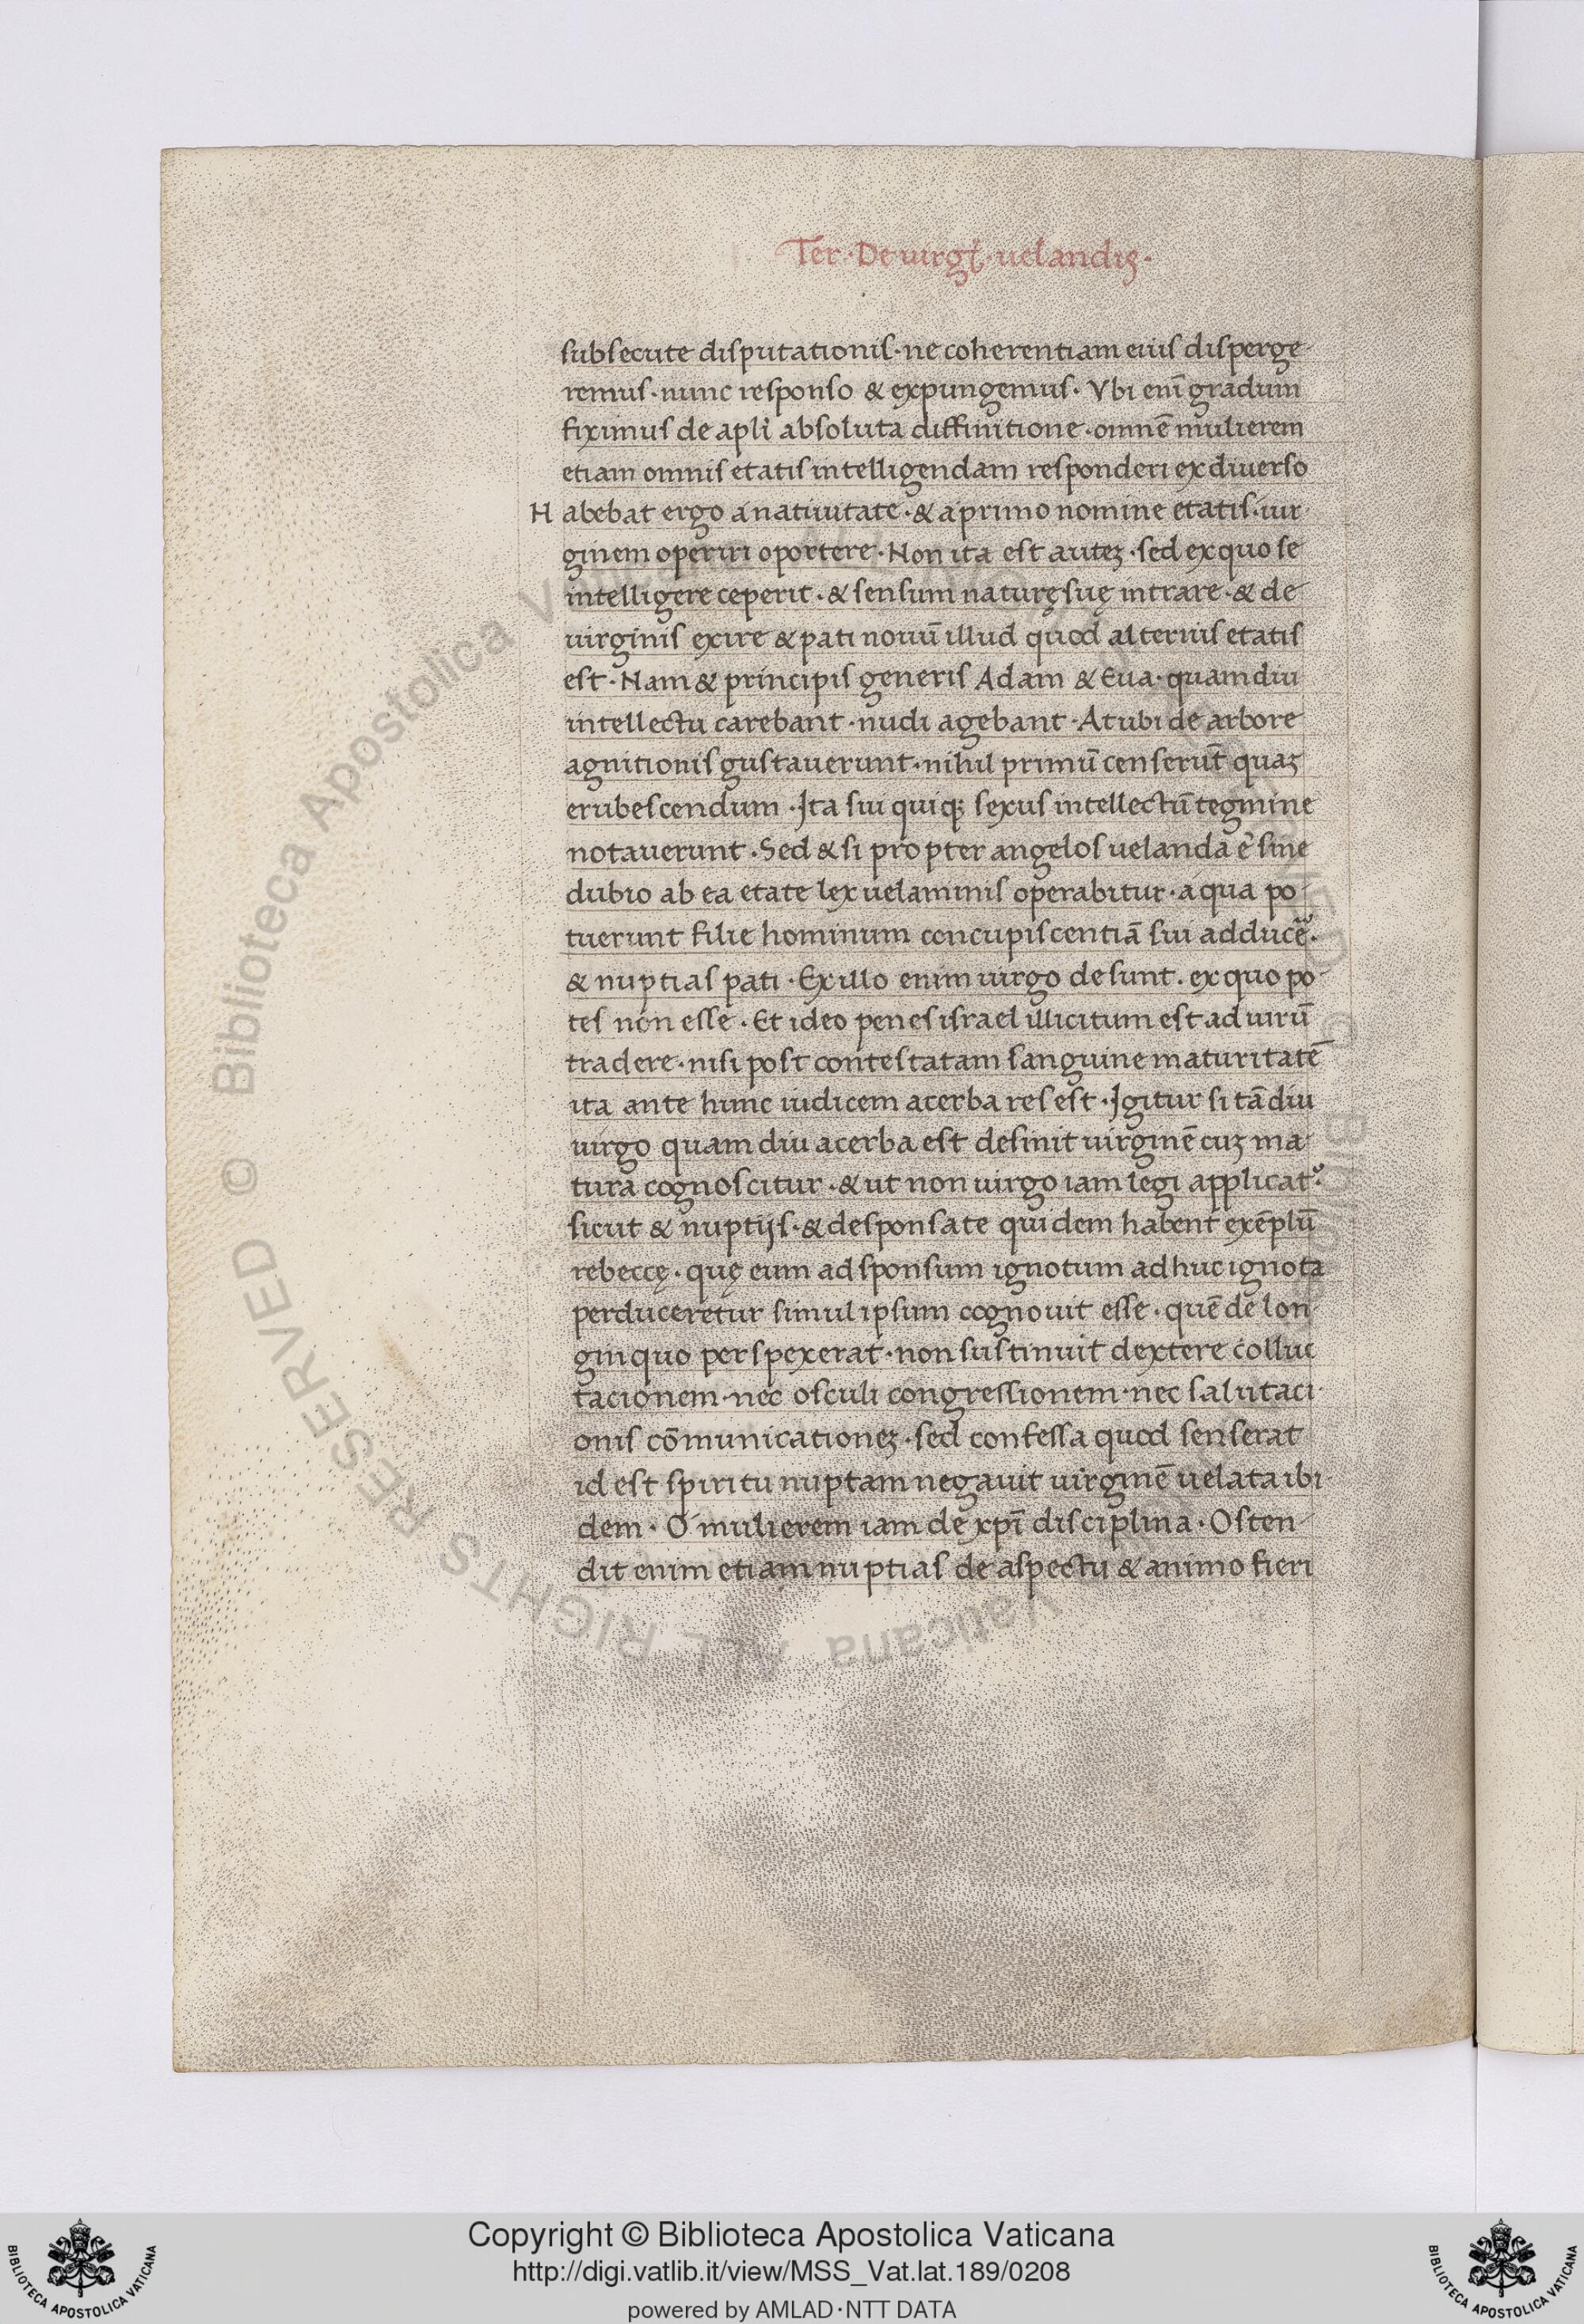 Ter · De uirgı̃ · uelandis ·
subsecute disputationis · ne coherentiam eius disperge-
remus · nunc responso & expungemus · Vbi enı̃ gradum
fiximus de apl̃i absoluta diffinitione · omnẽ mulierem
etiam omnis etatis intelligendam responderi ex diuerso
Habebat ergo a natiuitate · & a primo nomine etatis · uir-
ginem operiri oportere · Non ita est auteꝫ · sed ex quo se
intelligere ceperit · & sensum naturę suę intrare · & de
uirginis exire & pati nouũ illud quod alterius etatis
est · Nam & principis generis Adam & Eua · quamdiu
intellectu carebant · nudi agebant · At ubi de arbore
agnitionis gustauerunt · nihil primũ censerũt quaꝫ
erubescendum · Ita sui quiqꝫ sexus intellectũ tegmine
notauerunt · Sed & si propter angelos uelanda ẽ sine
dubio ab ea etate lex uelaminis operabitur · a qua po-
tuerunt filie hominum concupiscentiã sui adducẽ ·
& nuptias pati · Ex illo enim uirgo desunt · ex quo po-
tes non esse · Et ideo penes israel illicitum est ad uirũ
tradere · nisi post contestatam sanguine maturitatẽ
ita ante hunc iudicem acerba res est · Igitur si tã diu
uirgo quam diu acerba est desinit uirginẽ cuꝫ ma-
tura cognoscitur · & ut non uirgo iam legi applicat᷑ ·
sicut & nuptijs · & desponsate quidem habent exẽplũ
rebeccę · quę eum ad sponsum ignotum adhuc ignota
perduceretur simul ipsum cognouit esse · quẽ de lon-
ginquo perspexerat · non sustinuit dextere colluc
tacionem · nec osculi congressionem · nec salutaci-
onis cõmunicationeꝫ · sed confessa quod senserat
id est spiritu nuptam negauit uirginẽ uelata ibi
dem · O mulierem iam de xpı̃ disciplina · Osten-
dit enim etiam nuptias de aspectu & animo fieri
© Biblioteca Apostolica Vaticana ALL RIGHTS RESERVED
Copyright © Biblioteca Apostolica Vaticana
http://digi.vatlib.it/view/MSS_Vat.lat.189/0208
powered by AMLAD·NTT DATA
BIBLIOTECA APOSTOLICA VATICANA
BIBLIOTECA APOSTOLICA VATICANA